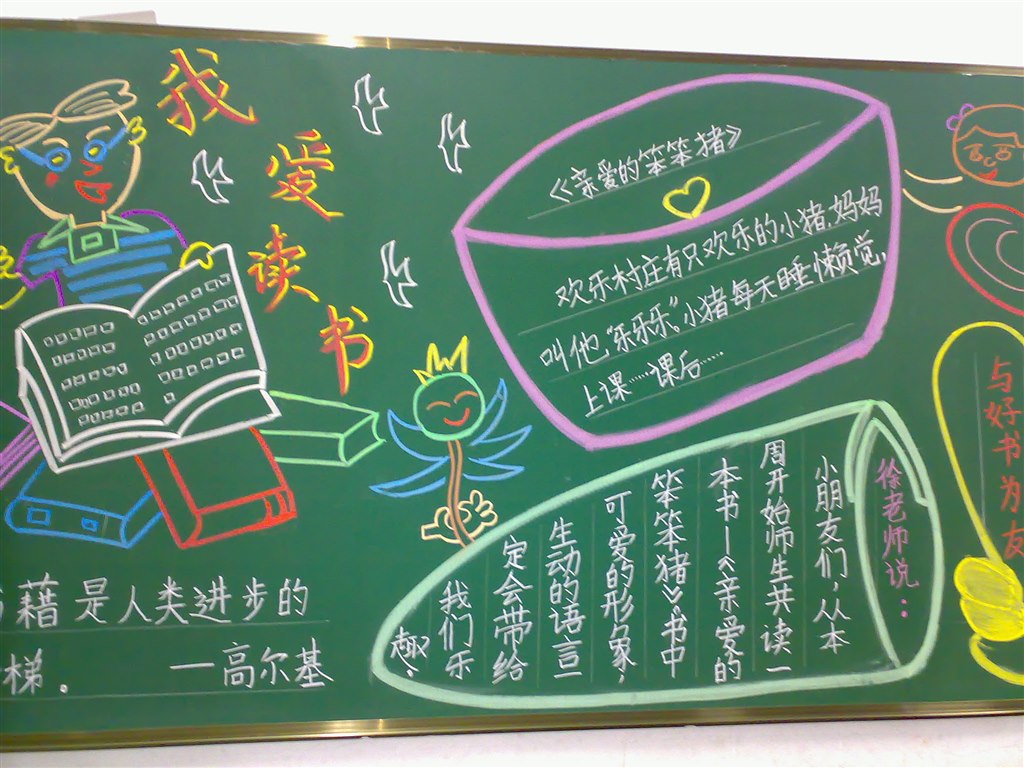 我爱读书
《亲爱的笨笨猪》
欢乐村庄有只欢乐的小猪，妈妈
叫他“乐乐乐”，小猪每天睡懒觉，
上课……课后……
徐老师说：
小朋友们，从本
周开始师生共读一
本书—《亲爱的
笨笨猪》。书中
可爱的形象，
生动的语言
定会带给
我们乐
趣。
籍是人类进步的
梯.
—高尔基
与好书为友